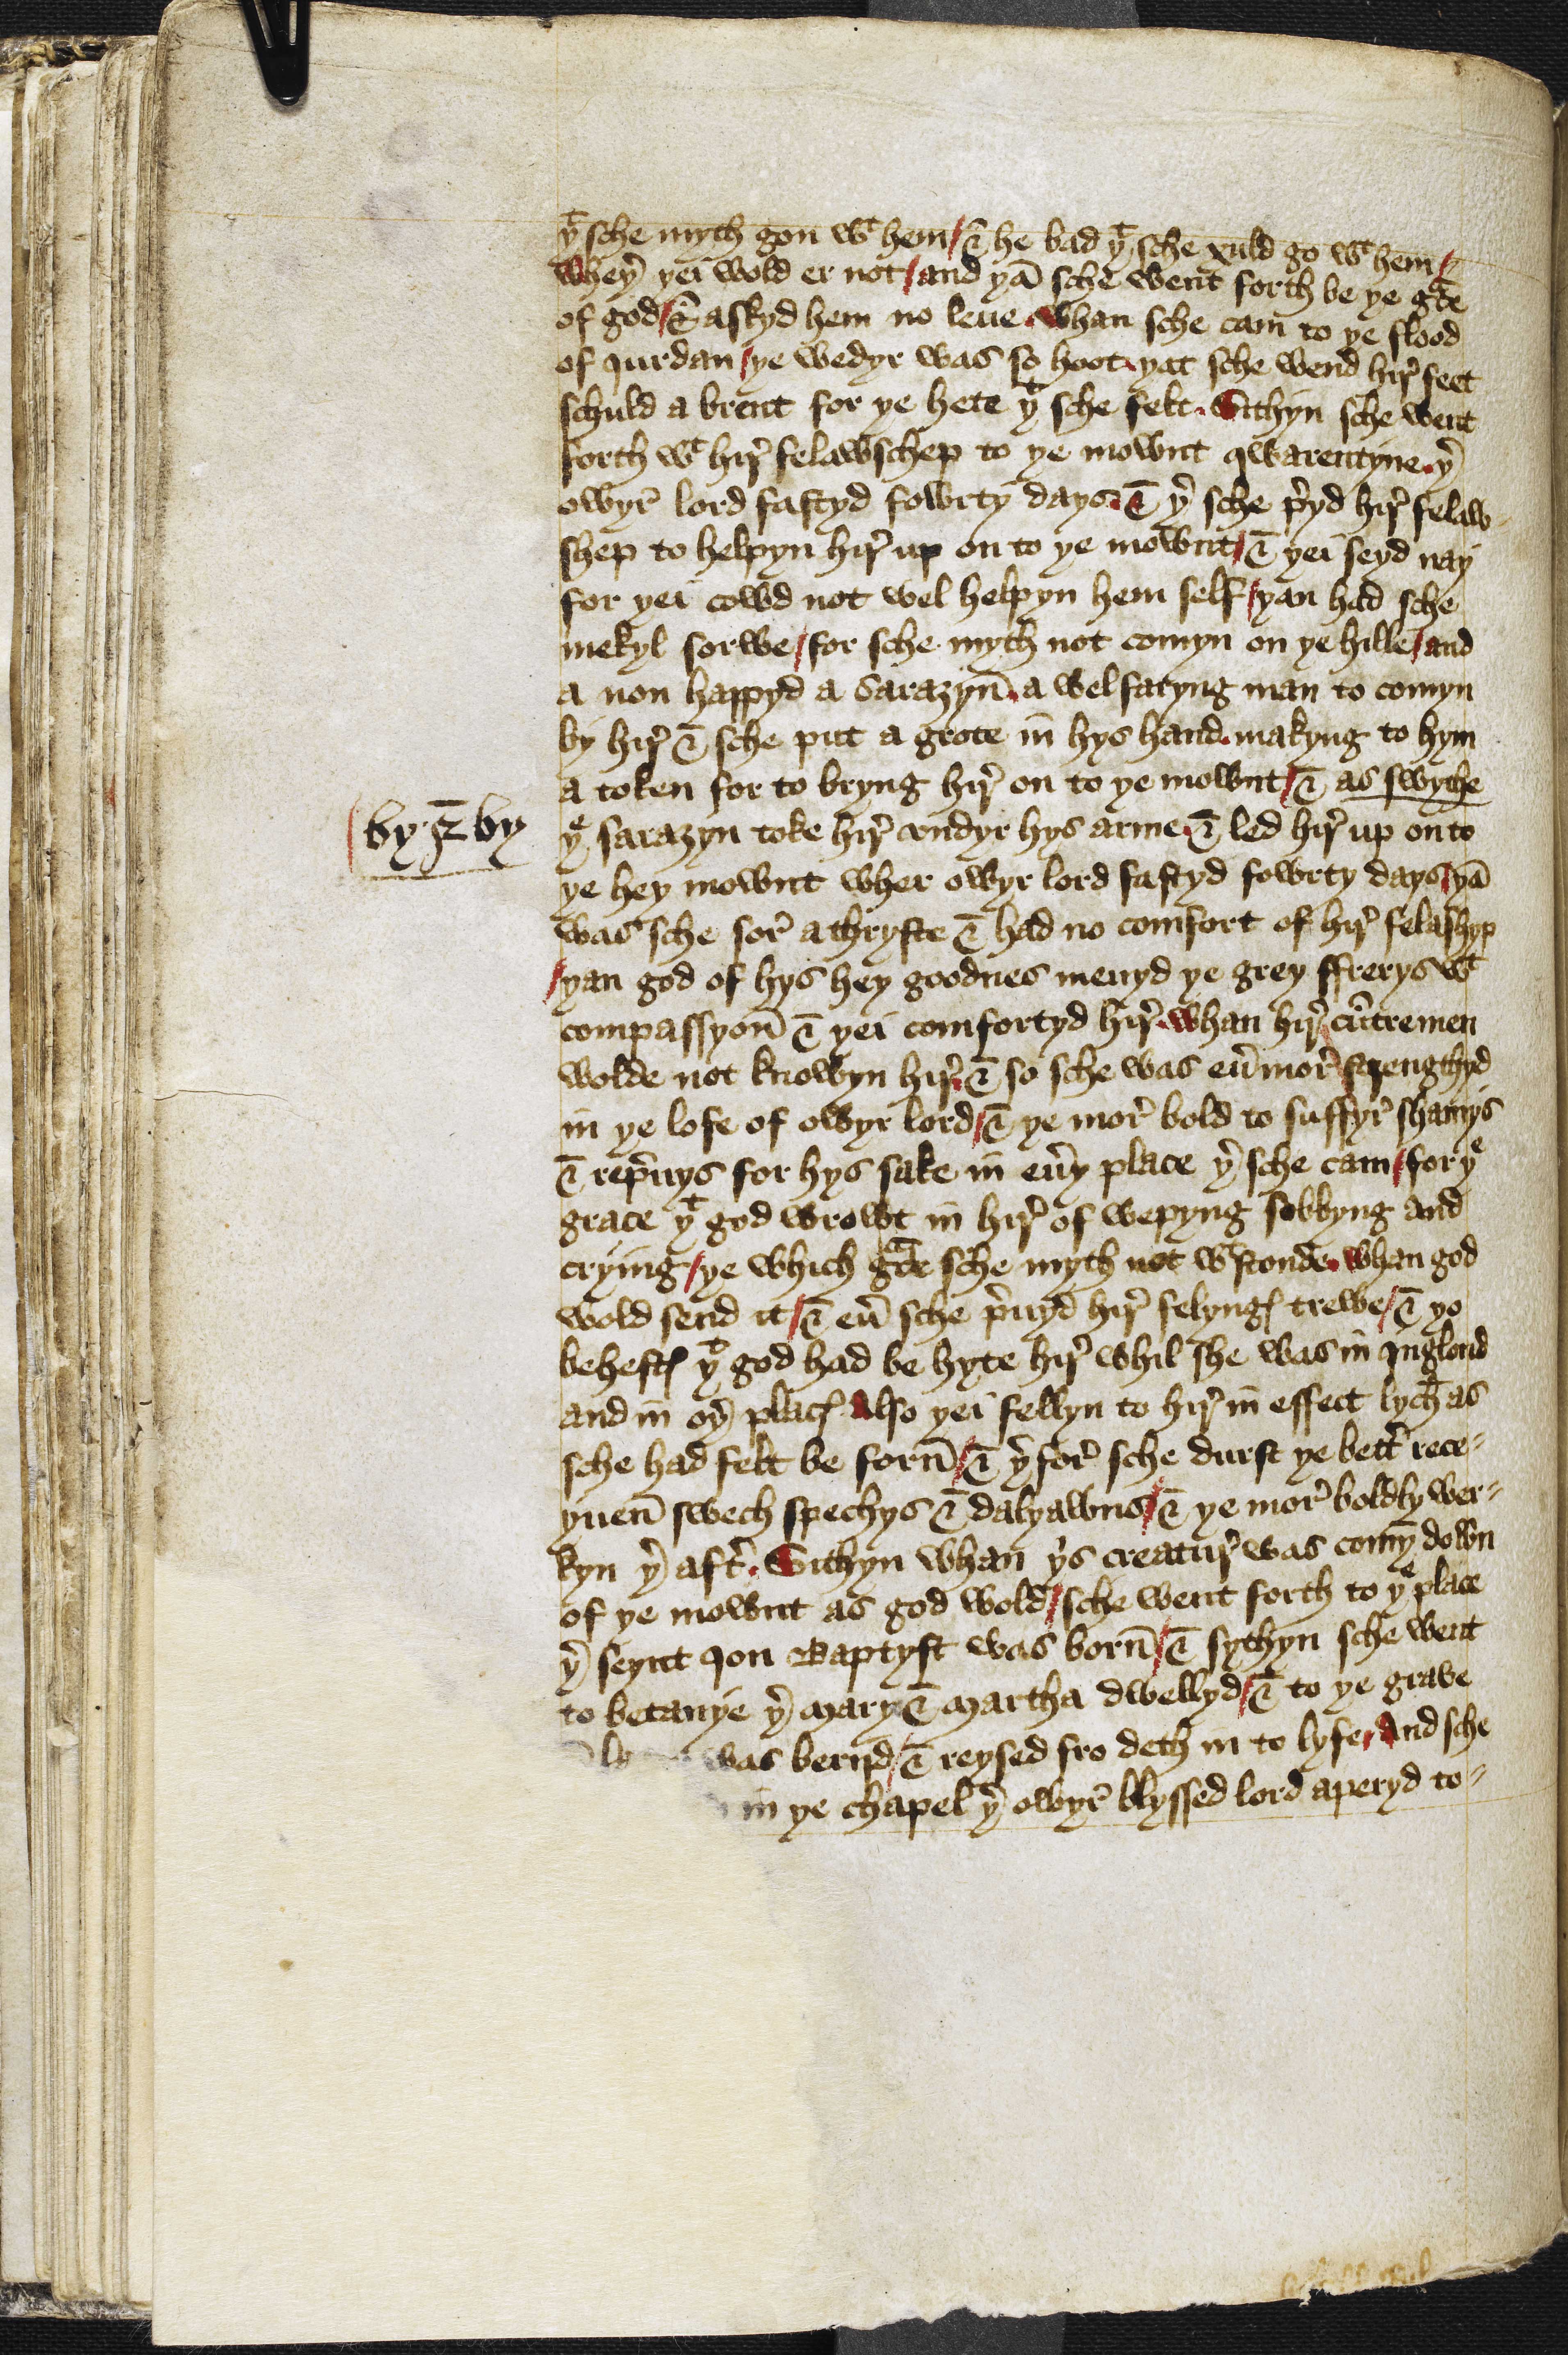 yͭ sche myth gon wͭ hem / & he bad yͭ sche xuld go wͭ hem /
wheyʼ yei wold er not / and yā sche went forth be ye gᵃce
of god / & askyd hem no leue . whan sche cam to ye flood
of Jurdan / ye wedyr was so hoot . yat sche wend hirʼ feet
schuld a brent for ye hete yͭ sche felt . Sithyn sche went
forth wͭ hirʼ felawschep to ye mownt qwarentyne . yʼ
owyr lord fastyd fowrty days . & yʼ sche pʼyd hirʼ felaw-
shep to helpyn hirʼ up on to ye mownt / & yei seyd nay
for yei cowd not wel helpyn hem self / yan had sche
mekyl sorwe / for sche myth not comyn on ye hille / and
a non happyd a Sarazyn̄ . a welfaryng man to comyn
by hirʼ & sche put a grote in hys hand . makyng to hym
a token for to bryng hirʼ on to ye mownt / & as swythe
by & by
yͤ sarazyn toke hirʼ vndyr hys arme . & led hirʼ up on to
ye hey mownt wher owyr lord fastyd fowrty days / yā
was sche sorʼ a thryste & had no comfort of hirʼ felashyp
/ yan god of hys hey goodnes meuyd ye grey ffrerys wͭ
compassyon̄ & yei comfortyd hirʼ . whan hirʼ cūtremen
wolde not knowyn hirʼ . & so sche was eūmorʼ strengthyd
in ye lofe of owyr lord / & ye morʼ bold to suffyrʼ shamys
& repʼuys for hys sake in euʼy place yʼ sche cam / for yͤ
grace yͭ god wrowt in hirʼ of wepyng sobbyng and
crying / ye which gᵃce sche myth not wͭstonde . whan god
wold send it / & euʼ sche pʼuyd hirʼ felyngꝭ trewe / & yo
behestꝭ yͭ god had be hyte hirʼ whil she was in Jnglond
and in oyʼ placꝭ . Also yei fellyn to hirʼ in effect lych as
sche had felt be forn̄ / & yʼforʼ sche durst ye bettʼ rece-
yuen̄ swech spechys & dalyawns / & ye morʼ boldly wer-
kyn yʼ aftʼ . Sithyn whan yʼs creaturʼ was comȳ down
of ye mownt as god wold / sche went forth to yͤ place
yʼ seynt Jon Baptyst was born̄ / & sythyn sche went
to betanye yʼ Mary & Martha dwellyd / & to ye grave
was beryid / & reysed fro deth in to lyfe . And sche
in ye chapel yʼ owyr blyssed lord aperyd to-